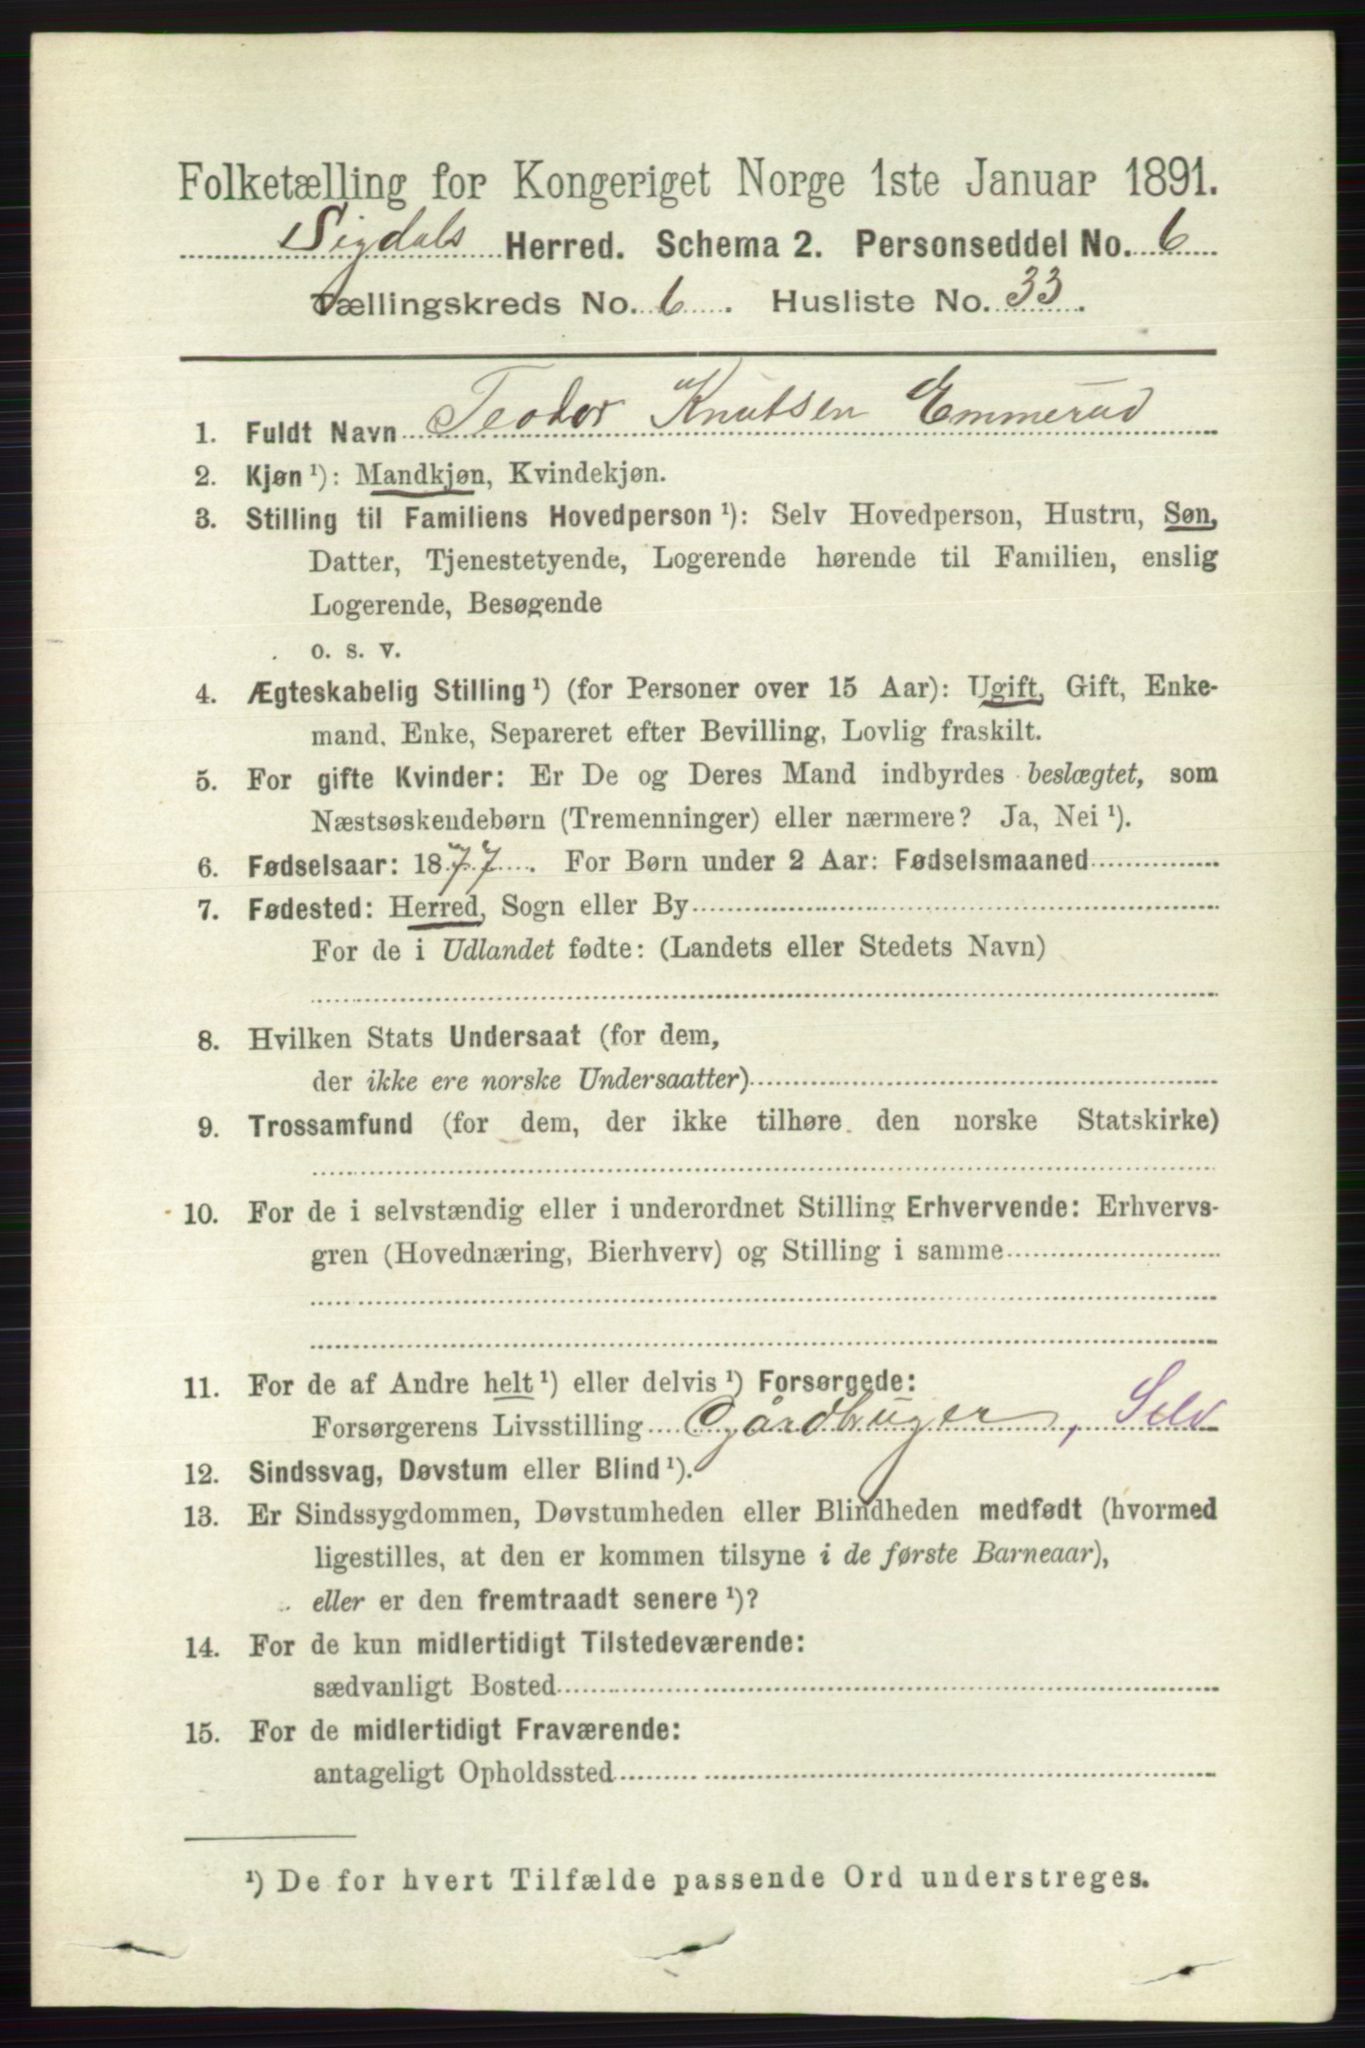 Folketælling for Kongeriget Norge 1ste Januar 1891.
Sigdals Herred. Schema 2. Personseddel No. 6
Tællingskreds No. 6. Husliste No. 33.
1. Fuldt Navn Teodor Knutsen Emmerud
2. Kjøn ¹): Mandkjøn, Kvindekjøn.
3. Stilling til Familiens Hovedperson ¹): Selv Hovedperson, Hustru, Søn,
Datter, Tjenestetyende, Logerende hørende til Familien, enslig
Logerende, Besøgende
o. s. v.
4. Ægteskabelig Stilling ¹) (for Personer over 15 Aar): Ugift, Gift, Enke-
mand, Enke, Separeret efter Bevilling, Lovlig fraskilt.
5. For gifte Kvinder: Er De og Deres Mand indbyrdes beslægtet, som
Næstsøskendebørn (Tremenninger) eller nærmere? Ja, Nei ¹).
6. Fødselsaar: 1877. For Børn under 2 Aar: Fødselsmaaned
7. Fødested: Herred, Sogn eller By
For de i Udlandet fødte: (Landets eller Stedets Navn)
8. Hvilken Stats Undersaat (for dem,
der ikke ere norske Undersaatter)
9. Trossamfund (for dem, der ikke tilhøre den norske Statskirke)
10. For de i selvstændig eller i underordnet Stilling Erhvervende: Erhvervs-
gren (Hovednæring, Bierhverv) og Stilling i samme
11. For de af Andre helt ¹) eller delvis ¹) Forsørgede:
Forsørgerens Livsstilling Gårdbruger, Selv
12. Sindssvag, Døvstum eller Blind ¹).
13. Er Sindssygdommen, Døvstumheden eller Blindheden medfødt (hvormed
ligestilles, at den er kommen tilsyne i de første Barneaar),
eller er den fremtraadt senere ¹)?
14. For de kun midlertidigt Tilstedeværende:
sædvanligt Bosted
15. For de midlertidigt Fraværende:
antageligt Opholdssted
¹) De for hvert Tilfælde passende Ord understreges.